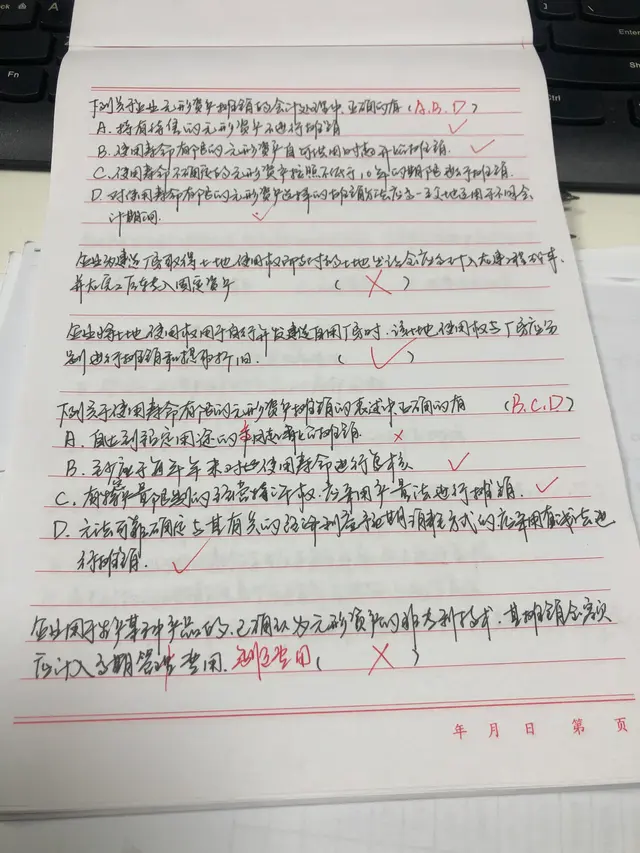 下列关于企业无形资产摊销的会计处理中,正确的有(A.B.D)
A. 持有待售的无形资产不进行摊销
B. 使用寿命有限的无形资产自可供使用时起开始摊销.
C. 使用寿命不确定的无形资产按照不低于10年的期限进行摊销.
D. 对使用寿命有限的无形资产选择的摊销方法应当一致地运用于不同会
计期间.
企业为建造厂房取得土地使用权所支付的土地出让金应当计入在建工程成本,
并在完工后转入固定资产 ( X )
企业将土地使用权用于自行开发建造自用厂房时,该土地使用权与厂房应分
别进行摊销和提取折旧. ( )
下列关于使用寿命有限的无形资产摊销的表述中正确的有 (B.C.D)
A. 自达到预定用途的 月起开始摊销. x
B. 至少应于每年年末对使用寿命进行复核
C. 有特定产量限制的经营特许权.应采用产量法进行摊销.
D. 无法可靠确定与其有关的经济利益预期消耗方式的应采用直线法进
行摊销.
企业用于生产某种产品的.已确认为无形资产的非专利技术.其摊销金额
应计入当期管理费用. 制造费用 ( X )
年 月 日 第 页